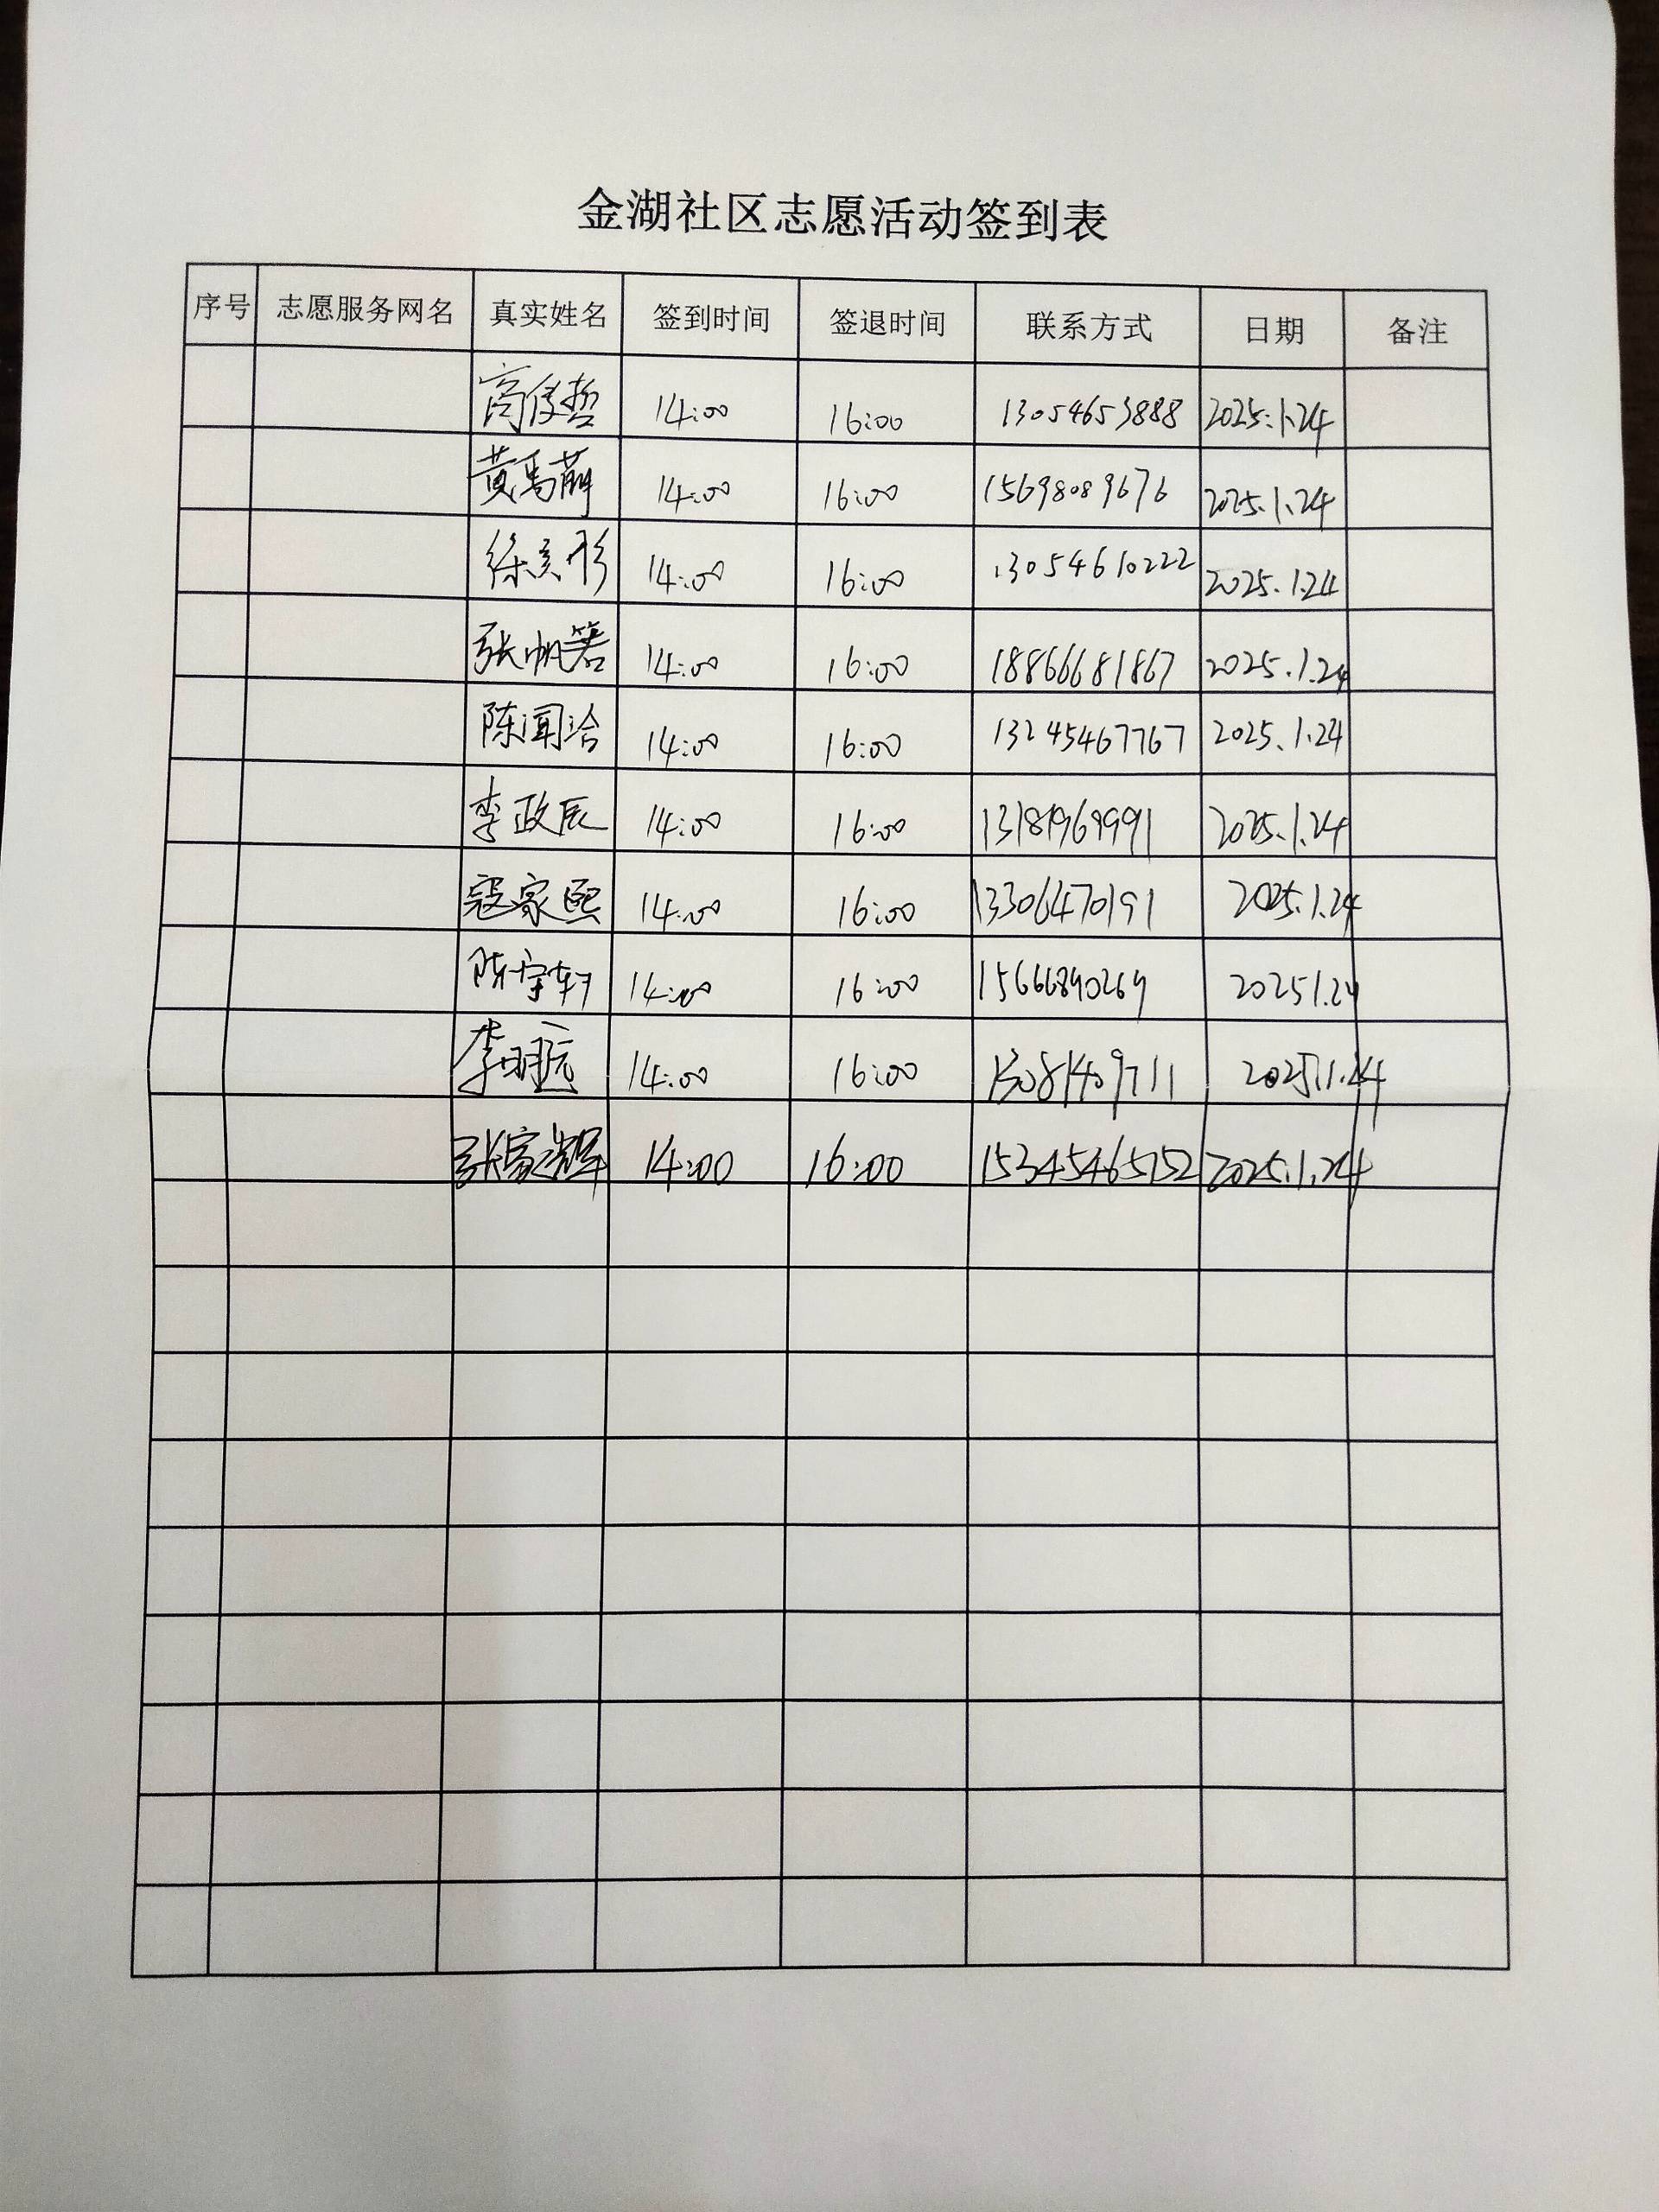 金湖社区志愿活动签到表
序号 志愿服务网名 真实姓名 签到时间 签退时间 联系方式 日期 备注
高俊哲 14:00 16:00 13054653888 2025.1.24
黄禹萌 14:00 16:00 15698089676 2025.1.24
徐 14:00 16:00 13054610222 2025.1.24
张帆箬 14:00 16:00 18866681867 2025.1.24
陈闻洽 14:00 16:00 13245467767 2025.1.24
李政辰 14:00 16:00 13181969991 2025.1.24
寇家熙 14:00 16:00 13306470191 2025.1.24
陈宇轩 14:00 16:00 15666890269 20251.24
李明远 14:00 16:00 13081409711 2025.1.24
张家 14:00 16:00 15345465152 2025.1.24